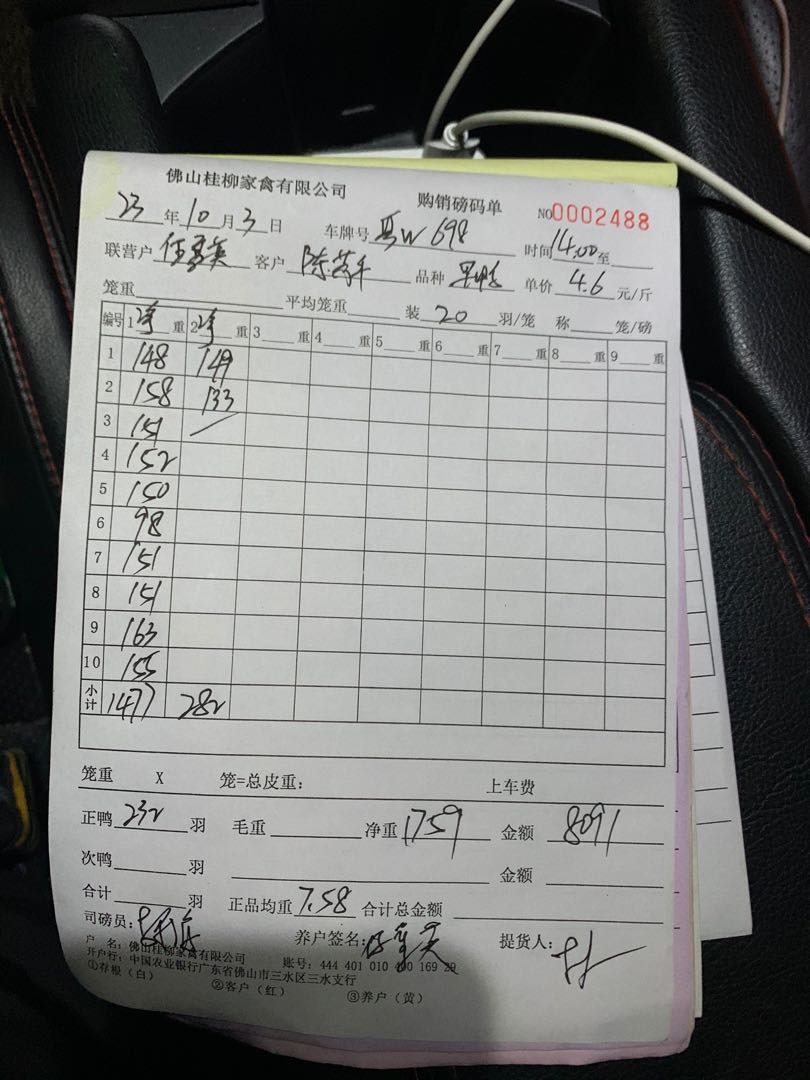 佛山桂柳家禽有限公司 购销磅码单 NO0002488
23年10月3日 车牌号 W698 时间14:00至
联营户 客户 陈 品种 单价 4.6 元/斤
笼重 平均笼重 装 20 羽/笼 称 笼/磅
编号 1净重 2净重 3 重 4 重 5 重 6 重 7 重 8 重 9 重
1 148 149
2 158 133
3 151 /
4 152
5 150
6 98
7 151
8 151
9 163
10 155
小计 1477 282
笼重 X 笼=总皮重: 上车费
正鸭 232 羽 毛重 净重 1759 金额 8091
次鸭 羽 金额
合计 羽 正品均重 7.58 合计总金额
司磅员: 养户签名: 提货人:
户 名: 佛山桂柳家禽有限公司 账号: 444 401 010 400 169 29
开户行: 中国农业银行广东省佛山市三水区三水支行
①存根(白) ②客户(红) ③养户(黄)